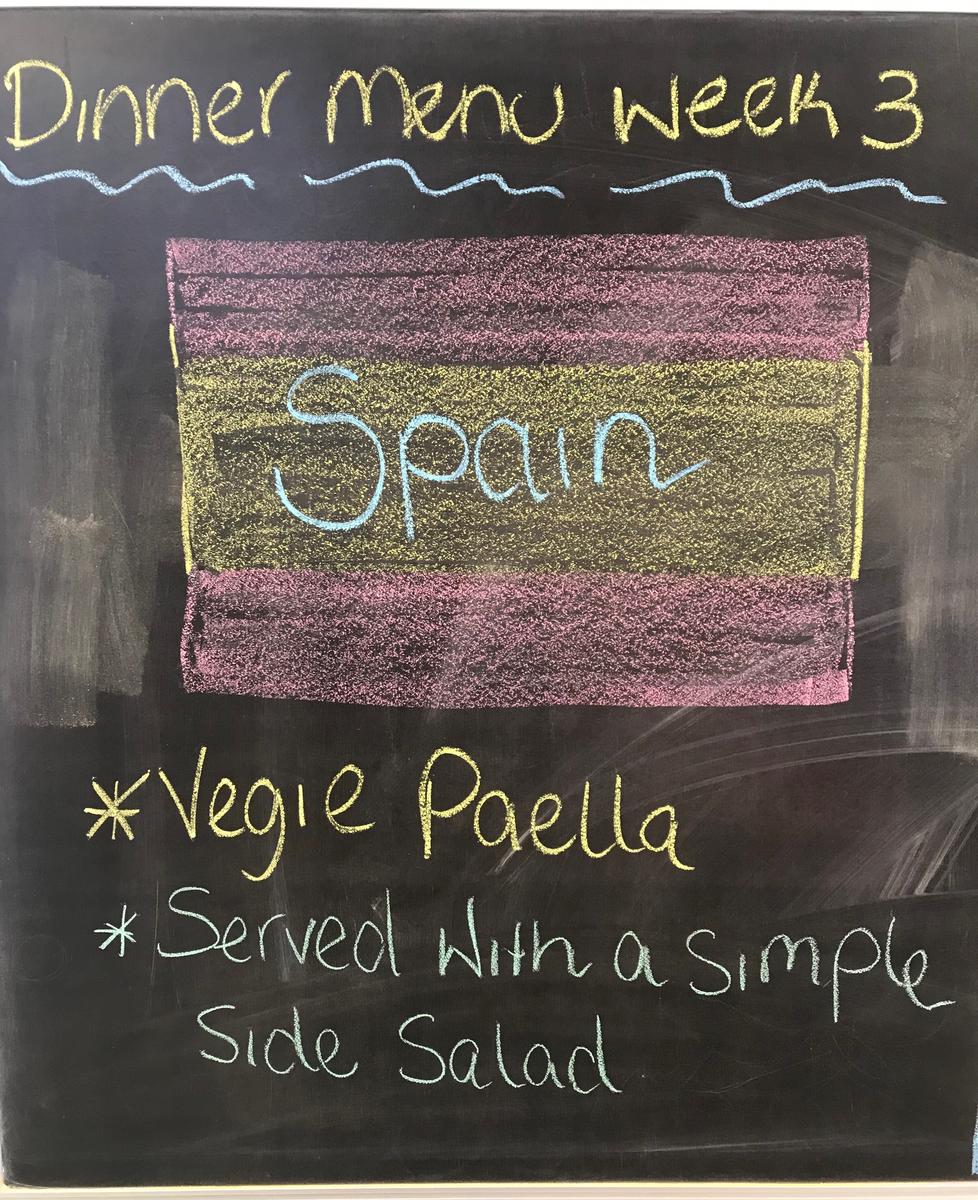 Dinner Menu Week 3
Spain
* Vegie Paella
* Served with a simple
Side Salad